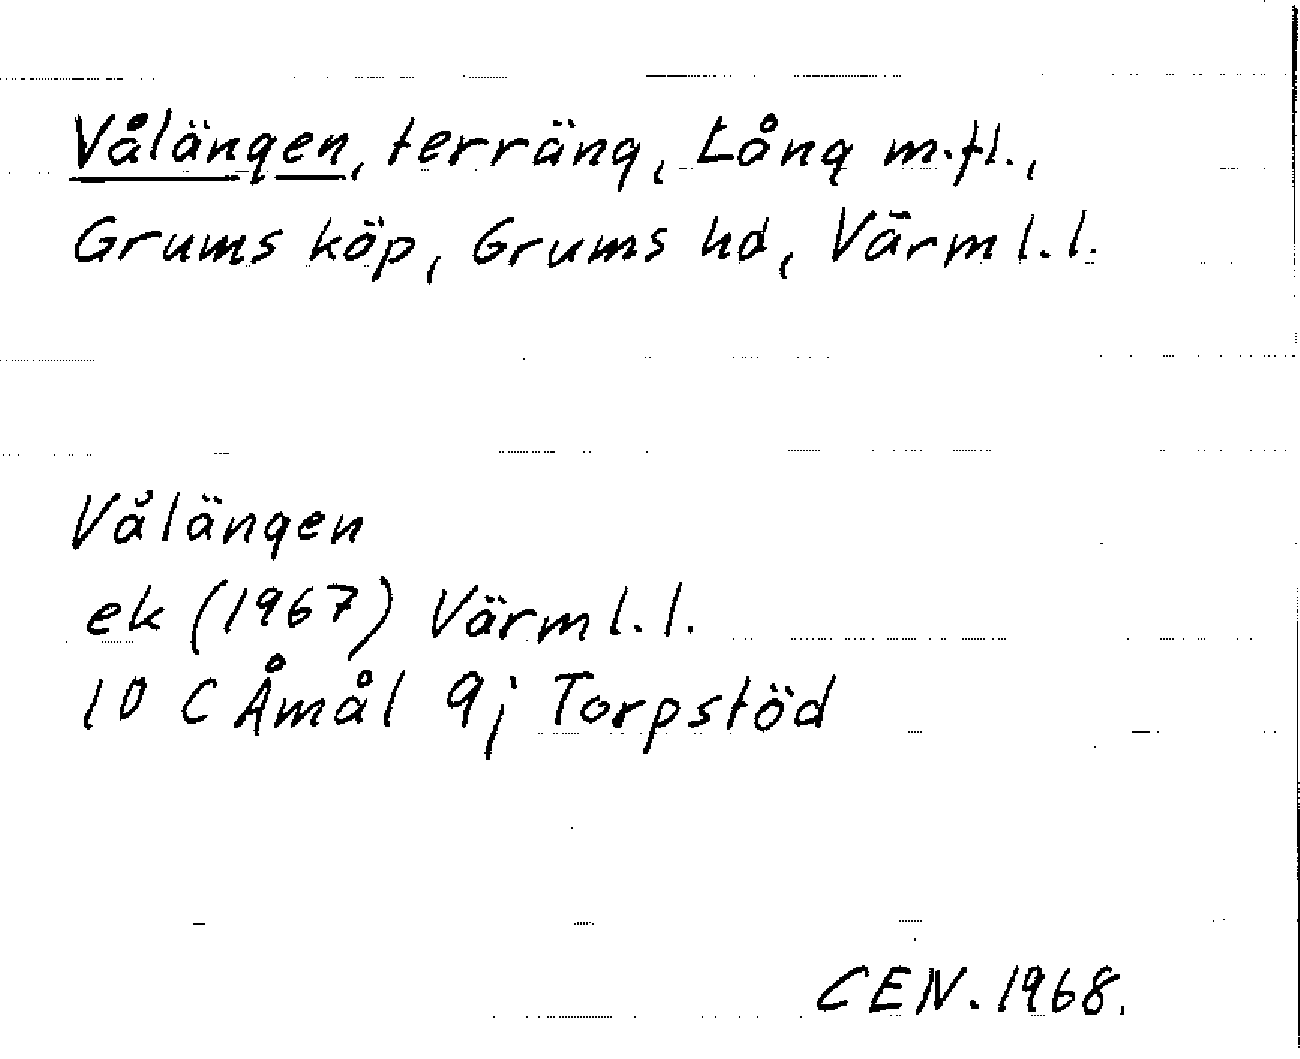 Vålängen, terräng, Lång m.fl.,
Grums köp, Grums hd, Värml.l.
Vålängen
ek (1967) Värml.l.
10 C Åmål 9j Torpstöd
CEN. 1968.